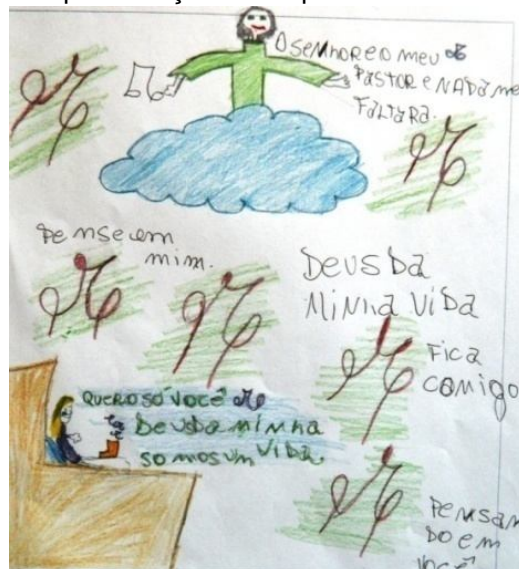 O SENHOR E O MEU
PASTOR E NADA ME
FALTARA.
PENSE EM
MIM.
DEUS DA
MINHA VIDA
FICA
COMIGO
QUERO SÓ VOCÊ
DEUS DA MINHA
VIDA
SOMOS UM
PENSAN
DO EM
VOCÊ